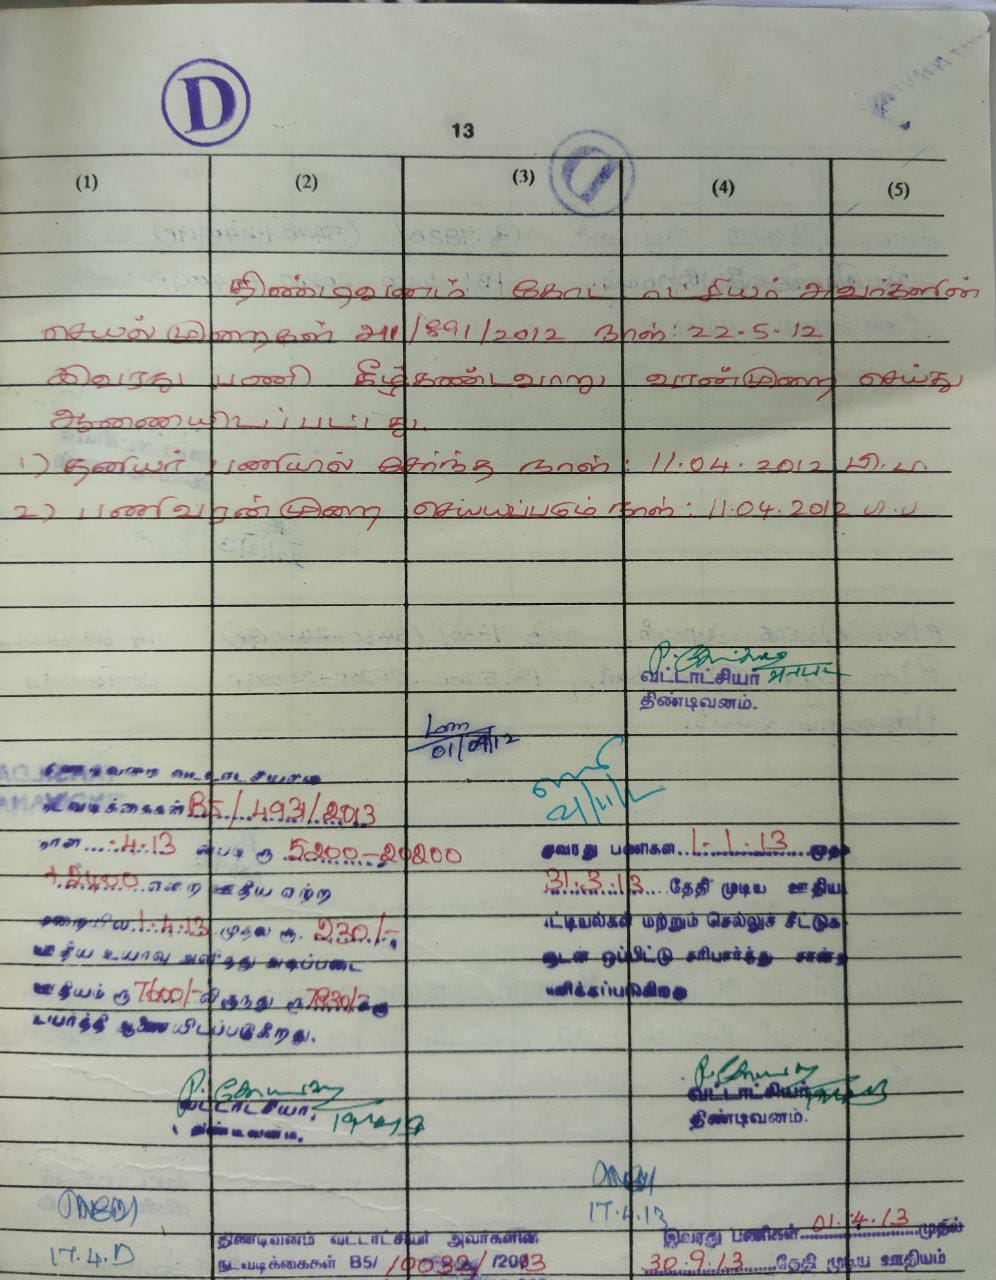 D
13
(1) (2) (3) (4) (5)
திண்டிவனம் கோட்டாட்சியர் அவர்களின்
செயல்முறைகள் அ1/891/2012 நாள்: 22-5-12
இவரது பணி கீழ்கண்டவாறு வரன்முறை செய்து
ஆணையிடப்பட்டது.
1) தனியர் பணியில் சேர்ந்த நாள்: 11.04.2012 பி.ப
2) பணிவரன்முறை செய்யப்படும் நாள்: 11.04.2012 பி.ப
வட்டாட்சியர்
திண்டிவனம்.
திண்டிவனம் வட்டாட்சியரது
நடவடிக்கைகள் B5/493/2013
நாள் .4.13 ன்படி ரூ 5200-20200
+2400 என்ற ஊதிய ஏற்ற
முறையில் 1.4.13 முதல் ரூ. 230/-
ஊதிய உயர்வு அளித்து அடிப்படை
ஊதியம் ரூ 7600/-லிருந்து ரூ 7830/-க்கு
உயர்த்தி ஆணையிடப்படுகிறது.
வட்டாட்சியர்
திண்டிவனம்.
21/11/12
இவரது பணிகள் 1.1.13 முதல்
31.3.13 தேதி முடிய ஊதிய
பட்டியல்கள் மற்றும் செல்லுச் சீட்டுக
ளுடன் ஒப்பிட்டு சரிபார்த்து சான்ற
ளிக்கப்படுகிறது
வட்டாட்சியர்
திண்டிவனம்.
17.4.13
திண்டிவனம் வட்டாட்சியர் அவர்களின்
நடவடிக்கைகள் B5/10032/2013
17.4.13
இவரது பணிகள் 01.4.13 முதல்
30.9.13 தேதி முடிய ஊதியம்